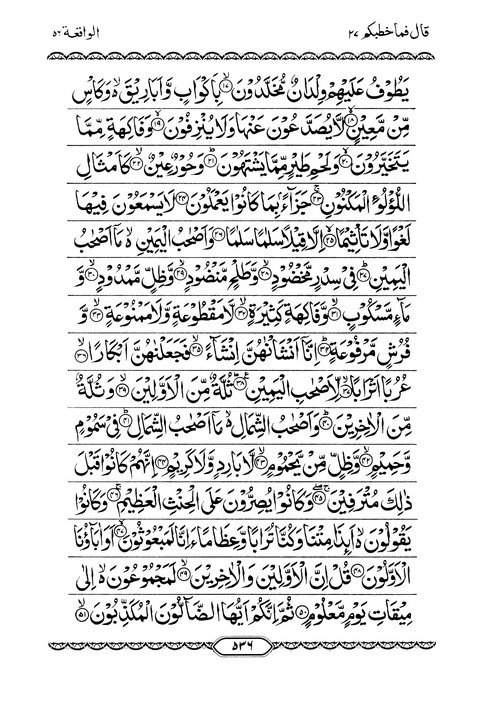 قال فما خطبكم ٢٧ الواقعة ٥٦
يَطُوْفُ عَلَيْهِمْ وِلْدَانٌ مُّخَلَّدُوْنَ ۝١٧ بِاَكْوَابٍ وَّاَبَارِيْقَ ۵ وَكَاْسٍ
مِّنْ مَّعِيْنٍ ۝١٨ لَّا يُصَدَّعُوْنَ عَنْهَا وَلَا يُنْزِفُوْنَ ۝١٩ وَفَاكِهَةٍ مِّمَّا
يَتَخَيَّرُوْنَ ۝٢٠ وَلَحْمِ طَيْرٍ مِّمَّا يَشْتَهُوْنَ ۝٢١ وَحُوْرٌ عِيْنٌ ۝٢٢ كَاَمْثَالِ
اللُّؤْلُؤِ الْمَكْنُوْنِ ۝٢٣ جَزَآءً بِمَا كَانُوْا يَعْمَلُوْنَ ۝٢٤ لَا يَسْمَعُوْنَ فِيْهَا
لَغْوًا وَّلَا تَاْثِيْمًا ۝٢٥ اِلَّا قِيْلًا سَلٰمًا سَلٰمًا ۝٢٦ وَاَصْحٰبُ الْيَمِيْنِ ۵ مَاۤ اَصْحٰبُ
الْيَمِيْنِ ۝٢٧ فِيْ سِدْرٍ مَّخْضُوْدٍ ۝٢٨ وَّطَلْحٍ مَّنْضُوْدٍ ۝٢٩ وَّظِلٍّ مَّمْدُوْدٍ ۝٣٠ وَّ
مَآءٍ مَّسْكُوْبٍ ۝٣١ وَّفَاكِهَةٍ كَثِيْرَةٍ ۝٣٢ لَّا مَقْطُوْعَةٍ وَّلَا مَمْنُوْعَةٍ ۝٣٣ وَّ
فُرُشٍ مَّرْفُوْعَةٍ ۝٣٤ اِنَّاۤ اَنْشَاْنٰهُنَّ اِنْشَآءً ۝٣٥ فَجَعَلْنٰهُنَّ اَبْكَارًا ۝٣٦
عُرُبًا اَتْرَابًا ۝٣٧ لِّاَصْحٰبِ الْيَمِيْنِ ۝٣٨ ثُلَّةٌ مِّنَ الْاَوَّلِيْنَ ۝٣٩ وَثُلَّةٌ
مِّنَ الْاٰخِرِيْنَ ۝٤٠ وَاَصْحٰبُ الشِّمَالِ ۵ مَاۤ اَصْحٰبُ الشِّمَالِ ۝٤١ فِيْ سَمُوْمٍ
وَّحَمِيْمٍ ۝٤٢ وَّظِلٍّ مِّنْ يَّحْمُوْمٍ ۝٤٣ لَّا بَارِدٍ وَّلَا كَرِيْمٍ ۝٤٤ اِنَّهُمْ كَانُوْا قَبْلَ
ذٰلِكَ مُتْرَفِيْنَ ۝٤٥ وَكَانُوْا يُصِرُّوْنَ عَلَى الْحِنْثِ الْعَظِيْمِ ۝٤٦ وَكَانُوْا
يَقُوْلُوْنَ ۵ اَئِذَا مِتْنَا وَكُنَّا تُرَابًا وَّعِظَامًا ءَاِنَّا لَمَبْعُوْثُوْنَ ۝٤٧ اَوَاٰبَآؤُنَا
الْاَوَّلُوْنَ ۝٤٨ قُلْ اِنَّ الْاَوَّلِيْنَ وَالْاٰخِرِيْنَ ۝٤٩ لَمَجْمُوْعُوْنَ ۵ اِلٰى
مِيْقَاتِ يَوْمٍ مَّعْلُوْمٍ ۝٥٠ ثُمَّ اِنَّكُمْ اَيُّهَا الضَّآلُّوْنَ الْمُكَذِّبُوْنَ ۝٥١
٥٣٦